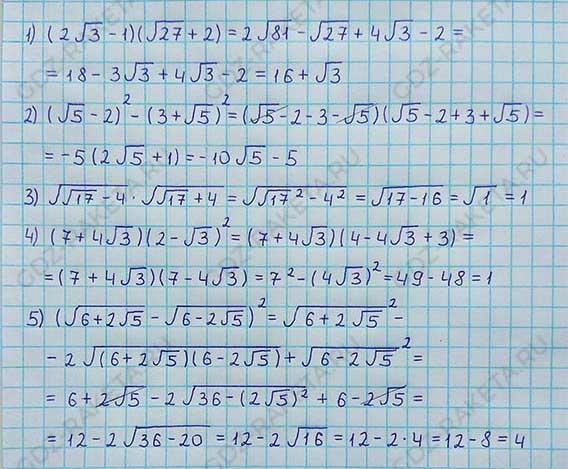 1) (2√3 - 1)(√27 + 2) = 2√81 - √27 + 4√3 - 2 =
= 18 - 3√3 + 4√3 - 2 = 16 + √3
2) (√5 - 2)² - (3 + √5)² = (√5 - 2 - 3 - √5)(√5 - 2 + 3 + √5) =
= -5(2√5 + 1) = -10√5 - 5
3) √(√17 - 4) · √(√17 + 4) = √(√17² - 4²) = √(17 - 16) = √1 = 1
4) (7 + 4√3)(2 - √3)² = (7 + 4√3)(4 - 4√3 + 3) =
= (7 + 4√3)(7 - 4√3) = 7² - (4√3)² = 49 - 48 = 1
5) (√(6 + 2√5) - √(6 - 2√5))² = √(6 + 2√5)² -
- 2√((6 + 2√5)(6 - 2√5)) + √(6 - 2√5)² =
= 6 + 2√5 - 2√(36 - (2√5)²) + 6 - 2√5 =
= 12 - 2√(36 - 20) = 12 - 2√16 = 12 - 2 · 4 = 12 - 8 = 4
GDZ-RAKETA.RU